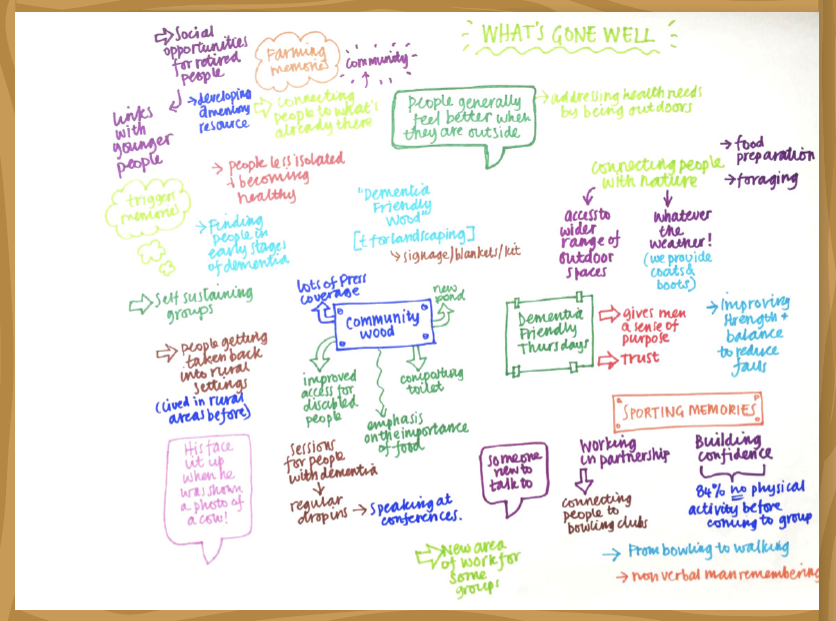 WHAT'S GONE WELL
⇨Social
opportunities
for retired
people
Links
with
younger
people
Farming
memories
community
→developing
a memory
resource
⇨connecting
people to what's
already there
People generally
feel better when
they are outside
→addressing health needs
by being outdoors
connecting people
with nature
→food
preparation
→foraging
access to
wider
range of
outdoor
spaces
whatever
the
weather!
(we provide
coats &
boots)
→ People less isolated
+ becoming
healthy
trigger
memories
→Finding
people in
early stages
of dementia
"Dementia
Friendly
Wood"
[£ for landscaping]
signage/blankets/kit
⇨Self sustaining
groups
⇨People getting
taken back
into rural
settings
(lived in rural
areas before)
His face
lit up
when he
was shown
a photo of
a cow!
lots of Press
coverage
new
pond
Community
wood
improved
access for
disabled
people
composting
toilet
emphasis
on the importance
of food
sessions
for people
with dementia
regular
dropins → Speaking at
conferences.
Dementia
Friendly
Thursdays
⇨gives men
a sense of
purpose
⇨Trust
→Improving
strength +
balance
to reduce
falls
SPORTING MEMORIES
Someone
new to
talk to
Working
in partnership
connecting
people to
bowling clubs
Building
confidence
84% no physical
activity before
coming to group
→ From bowling to walking
→ non verbal man remembering
⇨New area
of work for
some
groups